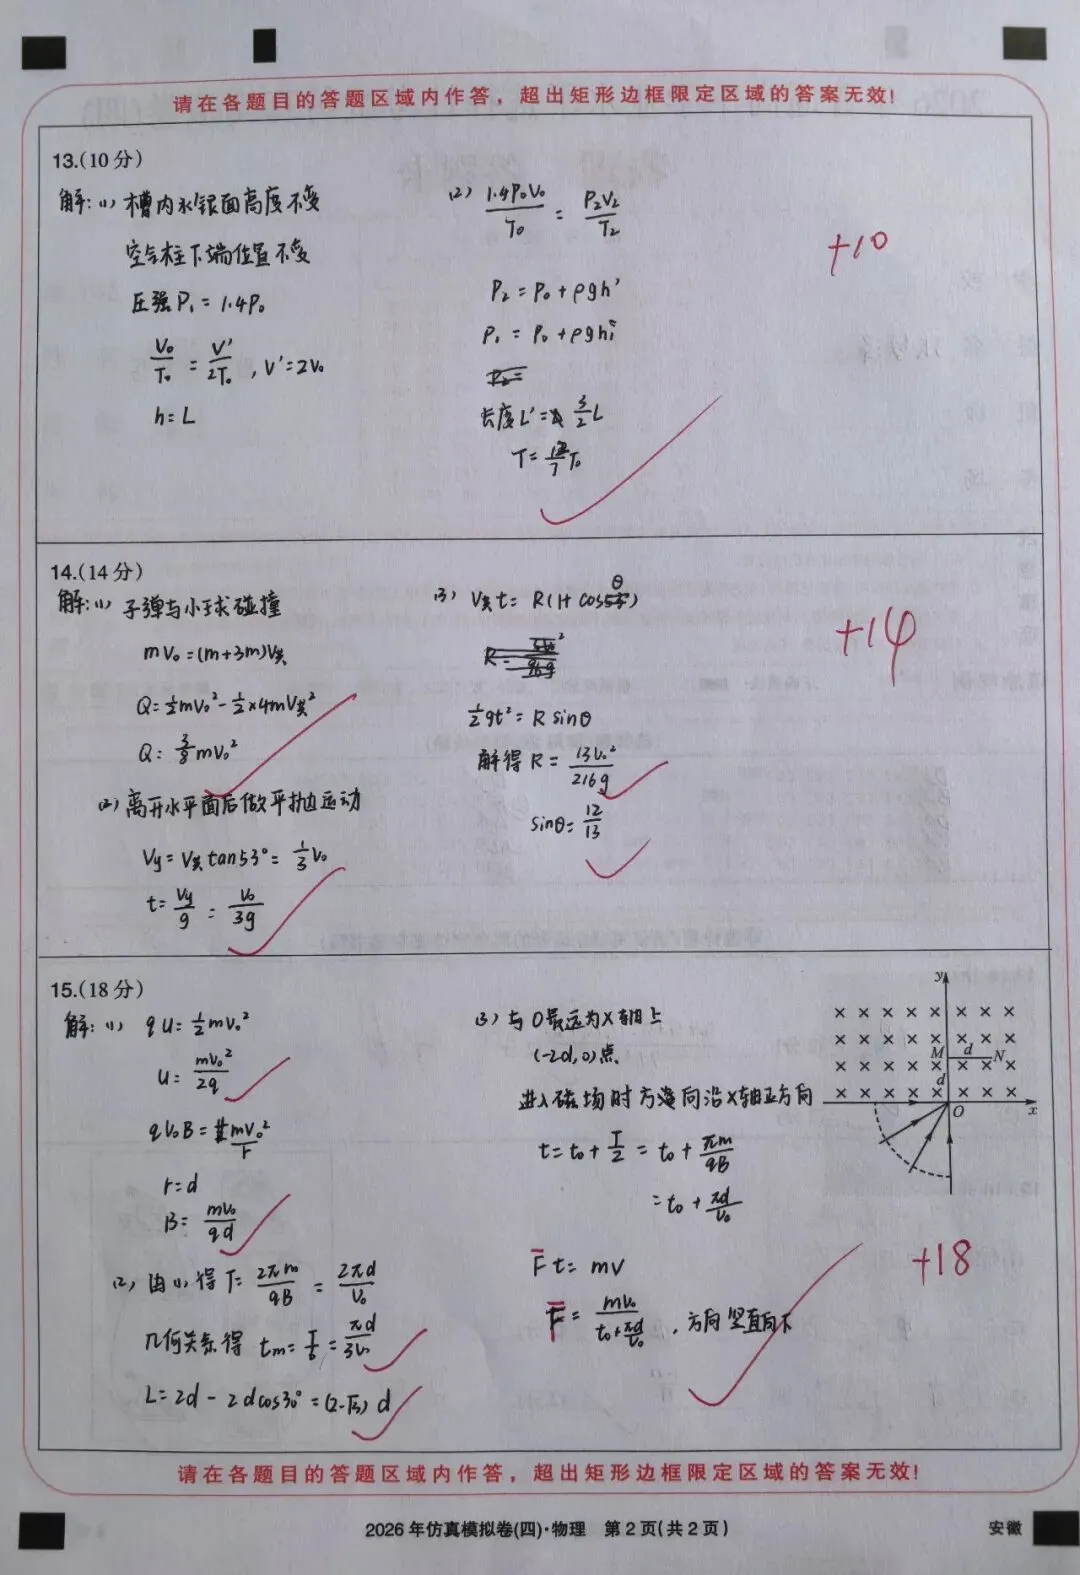 请在各题目的答题区域内作答，超出矩形边框限定区域的答案无效!
13.(10分)
解:(1) 槽内水银面高度不变
空气柱下端位置不变
压强P₁=1.4P₀
V₀/T₀ = V'/2T₀ , V'=2V₀
h=L
(2) 1.4P₀V₀/T₀ = P₂V₂/T₂
P₂=P₀+ρgh'
P₁=P₀+ρgh
长度L'= 3/2 L
T= /7 T₀
+10
14.(14分)
解:(1) 子弹与小球碰撞
mV₀=(m+3m)V共
Q=½mV₀²-½×4mV共²
Q=3/8 mV₀²
(2) 离开水平面后做平抛运动
Vy=V共tan53°=1/3 V₀
t=Vy/g=V₀/3g
(3) V共t=R(1+cosθ)
½gt²=Rsinθ
解得R=13V₀²/216g
sinθ=12/13
+14
15.(18分)
解:(1) qU=½mV₀²
U=mV₀²/2q
qV₀B=mV₀²/r
r=d
B=mV₀/qd
(2) 由(1)得T=2πm/qB=2πd/V₀
几何关系得 tm=T/6=πd/3V₀
L=2d-2dcos30°=(2-√3)d
(3) 与O最远为X轴上
(-2d,0)点
进入磁场时方向沿X轴正方向
t=t₀+T/2=t₀+πm/qB
=t₀+πd/V₀
F̄t=mV
F̄=mV₀/(t₀+πd/V₀) , 方向竖直向下
y
× × × × × × × ×
× × × × × × × ×
M d N
× × × × × × × ×
d
× × × × × × × ×
O x
+18
请在各题目的答题区域内作答，超出矩形边框限定区域的答案无效!
2026年仿真模拟卷(四)·物理 第2页(共2页)
安徽